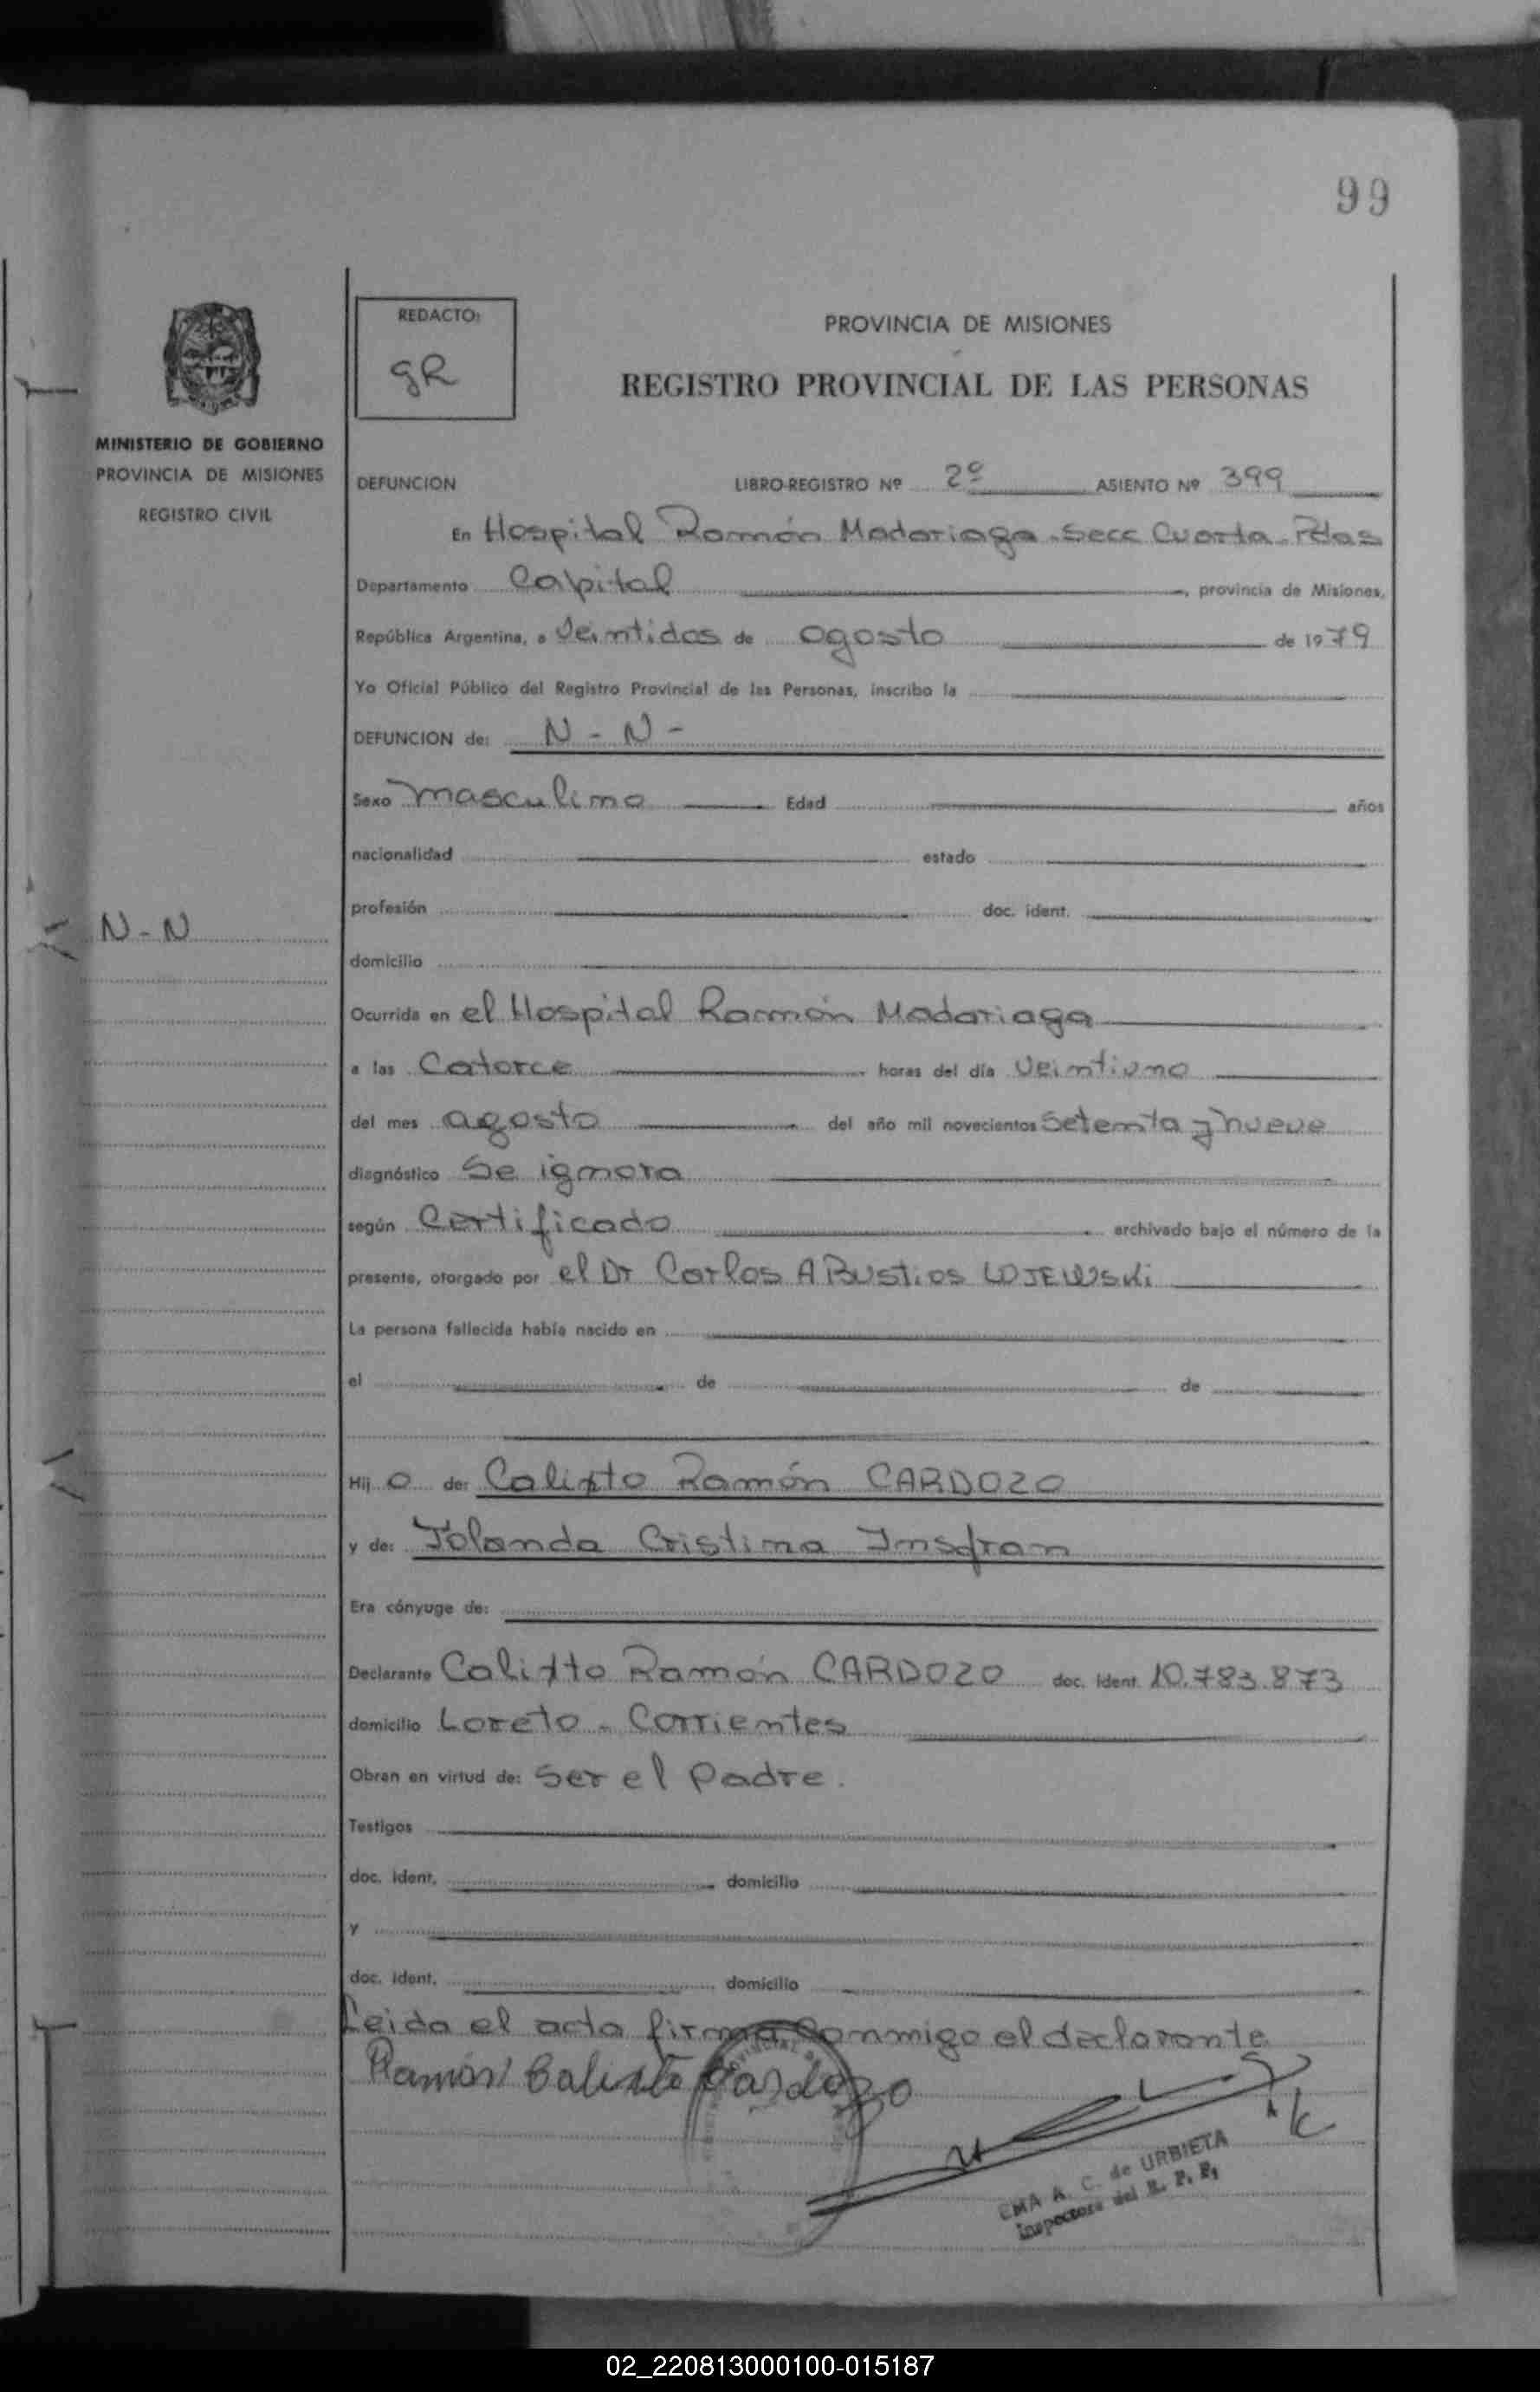 99
REDACTO:
gR
PROVINCIA DE MISIONES
REGISTRO PROVINCIAL DE LAS PERSONAS
MINISTERIO DE GOBIERNO
PROVINCIA DE MISIONES
REGISTRO CIVIL
DEFUNCION LIBRO-REGISTRO Nº 2º ASIENTO Nº 399
En Hospital Ramón Madariaga - Secc Cuarta - Pdas
Departamento Capital, provincia de Misiones,
República Argentina, a Veintidos de agosto de 1979
Yo Oficial Público del Registro Provincial de las Personas, inscribo la
DEFUNCION de: N - N -
Sexo masculino Edad años
nacionalidad estado
profesión doc. ident.
N - N
domicilio
Ocurrida en el Hospital Ramón Madariaga
a las Catorce horas del día Veintiuno
del mes agosto del año mil novecientos Setenta y nueve
diagnóstico Se ignora
según Certificado archivado bajo el número de la
presente, otorgado por el Dr Carlos A Bustios WOJEWSKi
La persona fallecida había nacido en
el de de
Hij o de: Calixto Ramón CARDOZO
y de: Yolanda Cristina Insfran
Era cónyuge de:
Declarante Calixto Ramón CARDOZO doc. ident. 10.783.873
domicilio Loreto - Corrientes
Obran en virtud de: Ser el padre.
Testigos
doc. ident. domicilio
y
doc. ident. domicilio
Leida el acta firma conmigo el declarante
Ramón Calixto Cardozo
EMA A. C. de URBIETA
Inspectora del R. P. P.
02_220813000100-015187